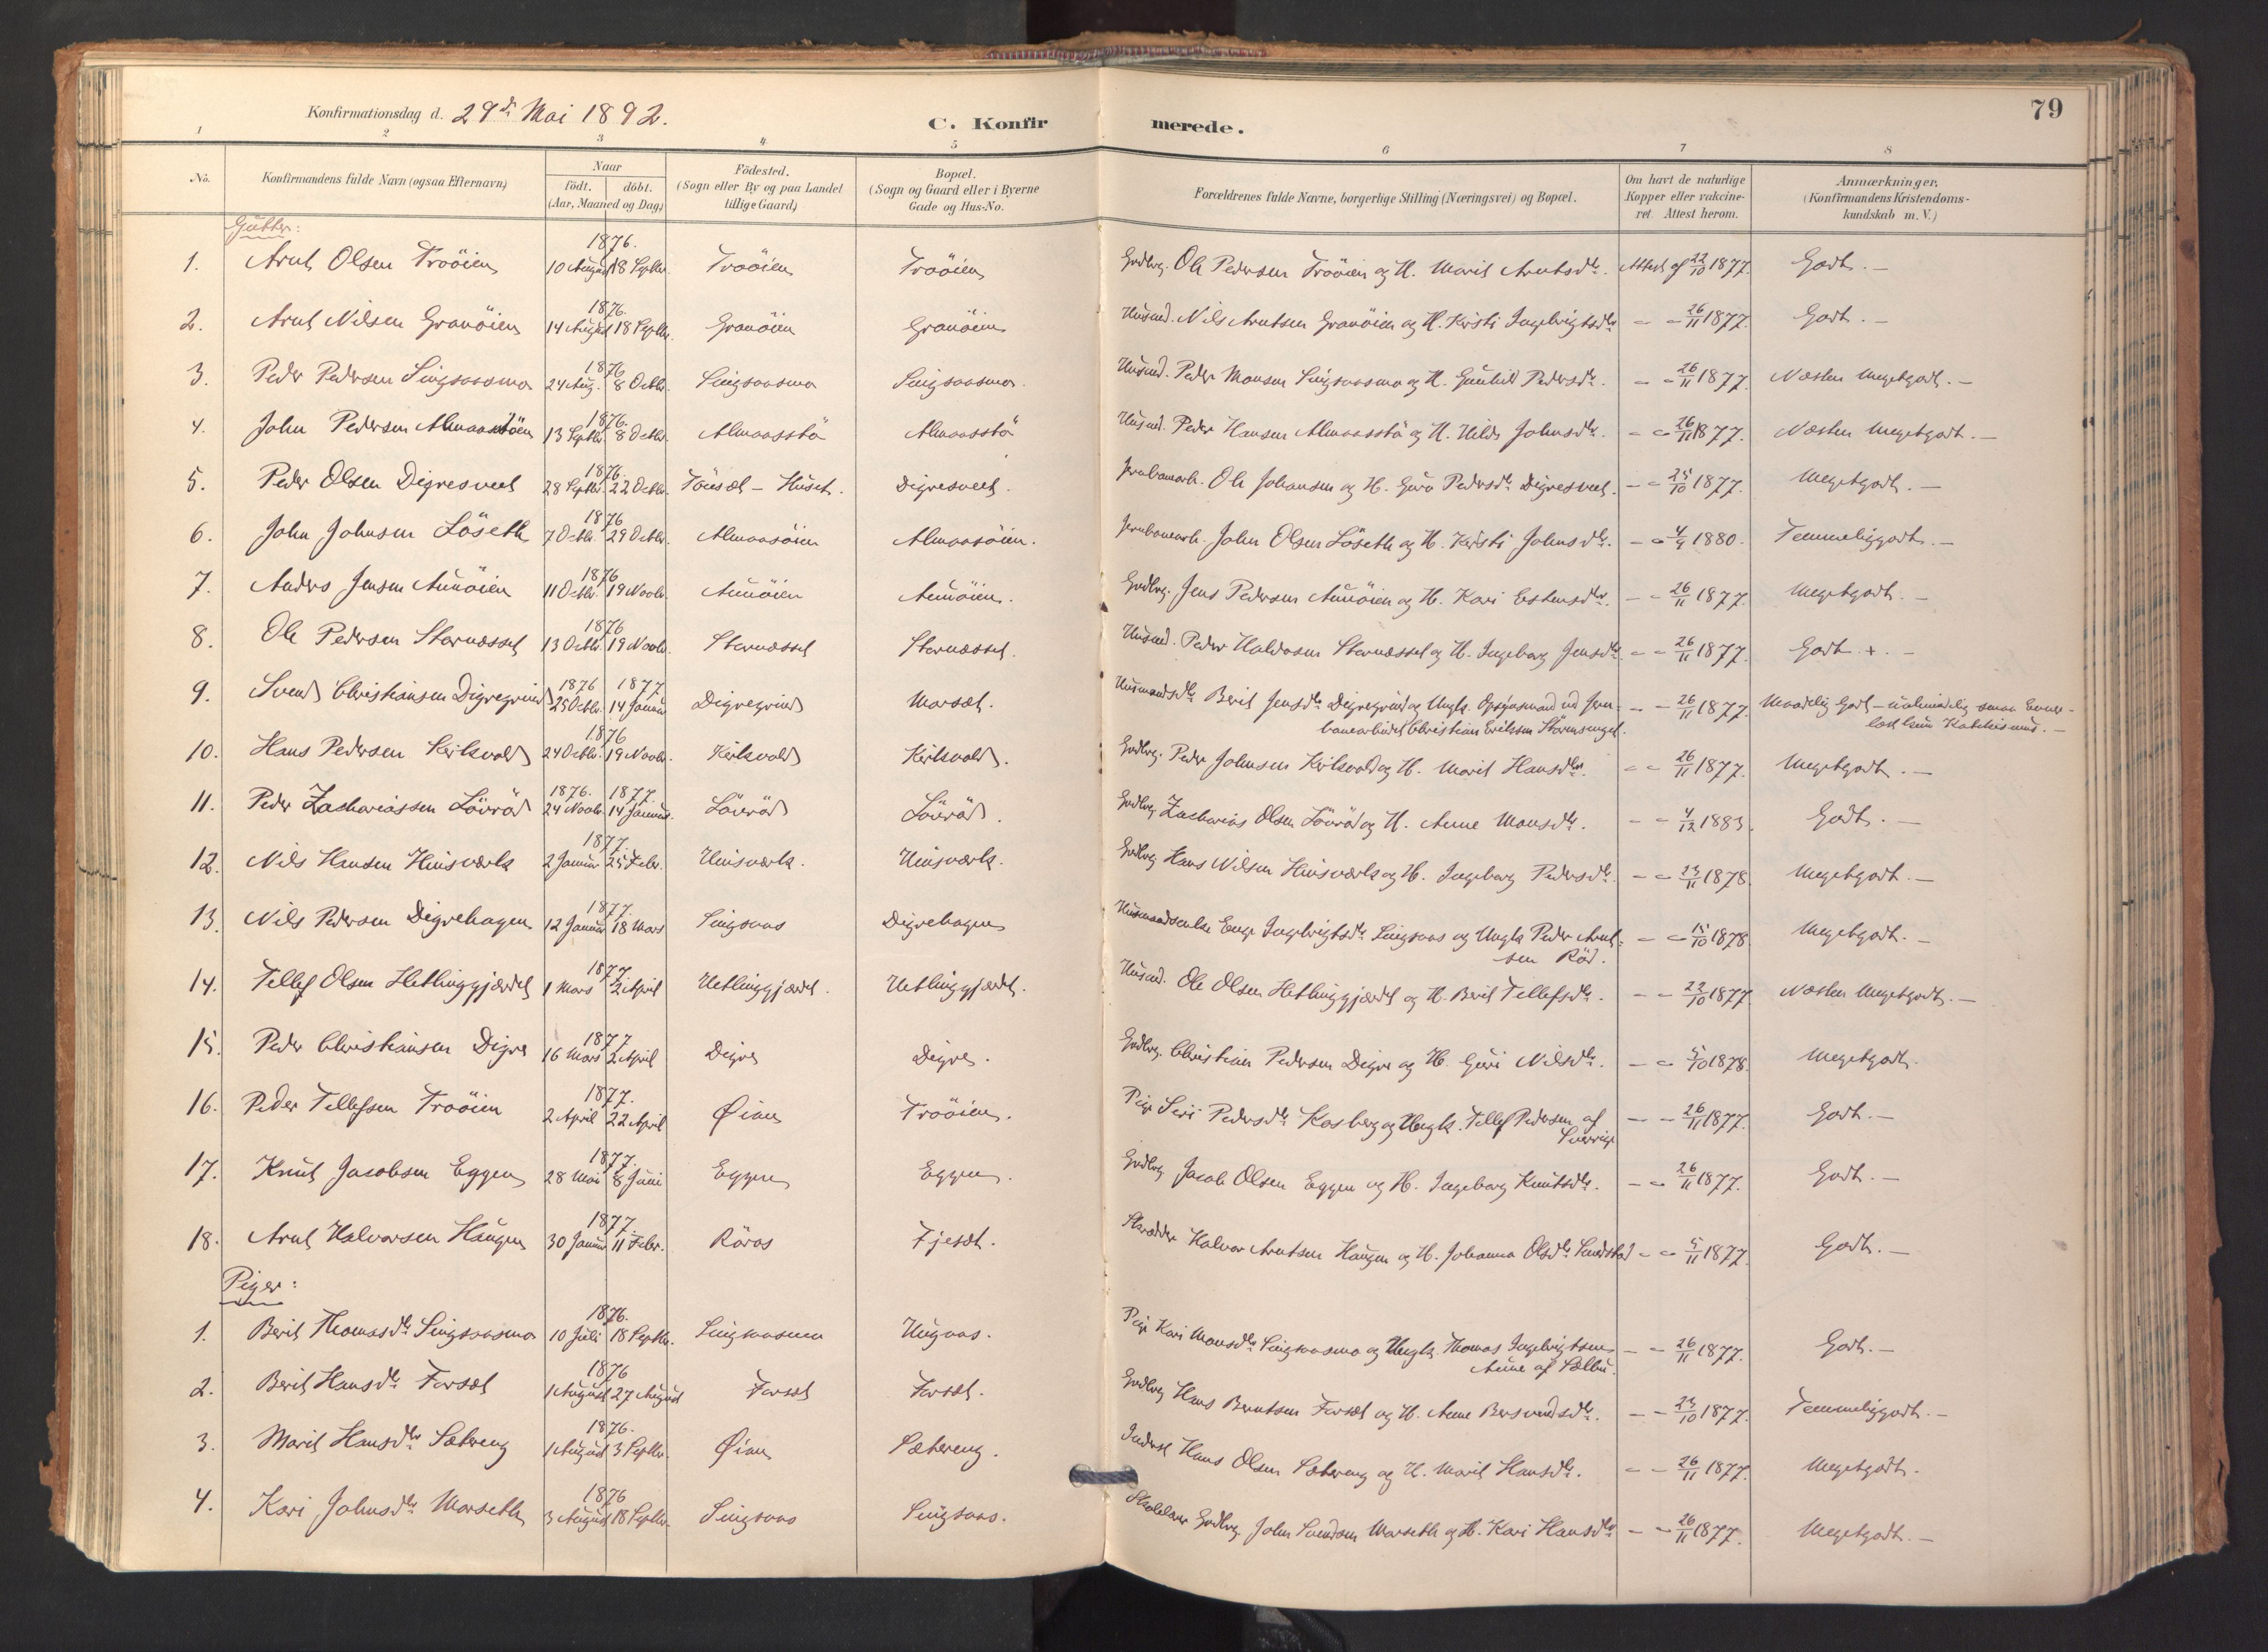 Konfirmationsdag d. 29de Mai 1892.
C. Konfirmerede.
79
1 2 3 4 5 6 7 8
No. Konfirmandens fulde Navn (ogsaa Efternavn) Naar födt. döbt. (Aar, Maaned og Dag) Födested. (Sogn eller By og paa Landet tillige Gaard) Bopæl. (Sogn og Gaard eller i Byerne Gade og Hus-No. Forældrenes fulde Navne, borgerlige Stilling (Næringsvei) og Bopæl. Om havt de naturlige Kopper eller vakcineret. Attest herom. Anmærkninger. (Konfirmandens Kristendomskundskab m. V.)
Gutter:
1. Arnt Olsen Troöien 1876. 10 August 18 Septbr. Troöien Troöien Grdbrg. Ole Pedersen Troöien og H. Marit Arntsdtr. Attest af 22/10 1877. Godt. —
2. Arnt Nilsen Granöien 1876. 14 August 18 Septbr. Granöien Granöien Husmd. Nils Arntsen Granöien og H. Kirsti Ingebrigtsdtr - - 26/11 1877. Godt. —
3. Peder Pedersen Singsaasmo 1876 24 Aug. 8 Octbr. Singsaasmo Singsaasmo. Husmd. Peder Monsen Singsaasmo og H. Gunhild Pedersdtr. - - 26/11 1877. Næsten Megetgodt. —
4. John Pedersen Almaasstöen 1876. 13 Septbr. 8 Octbr. Almaasstö Almaasstö Husmd. Peder Hansen Almaasstö og H. Hilda Johnsdtr. - - 26/11 1877. Næsten Megetgodt. —
5. Peder Olsen Digresveet 1876. 28 Septbr. 22 Octbr. Tönset - Huset. Digresveet. Jernbanearb. Ole Johansen og H. Guro Pedersdtr Digresveet. - - 25/10 1877. Megetgodt. —
6. John Johnsen Löseth 1876 7 Octbr. 29 Octbr. Almaasöien Almaasöien. Jernbanearb. John Olsen Löseth og H. Kirsti Johnsdtr. - - 4/9 1880. Temmeliggodt. —
7. Anders Jensen Aunöien 1876 11 Octbr. 19 Novbr. Aunöien Aunöien. Grdbrg. Jens Pedersen Aunöien og H. Kari Estensdtr. - - 26/11 1877. Megetgodt. —
8. Ole Pedersen Stornesset 1876 13 Octbr. 19 Novbr. Stornæsset Stornæsset. Husmd. Peder Haldosen Stornæsset og H. Ingeborg Jensdtr. - - 26/11 1877. Godt +. -
9. Svend Christiansen Digregrind 1876 1877 25 Octbr. 14 Januar Digregrind Morset. Husmandsdtr Berit Jensdtr Digregrind og Ungk. Opsynsmand ved Jernbanearbeidet Christian Eriksen Störensenget. - - 26/11 1877. Maadelig Godt - ualmindelig smaa Evner -
10. Hans Pedersen Kirksvold 1876 24 Octbr. 19 Novbr. Kirksvold Kirksvold. Grdbrg. Peder Johnsen Kirksvold og H. Marit Hansdtr. - - 26/11 1877. Megetgodt. —
11. Peder Zachariassen Lövröd 1876. 1877. 24 Novbr. 14 Januar. Lövröd Lövröd. Grdbrg. Zacharias Olsen Lövröd og H. Anne Monsdtr. - - 4/12 1883. Godt. —
12. Nils Hansen Hinsværk 1877. 2 Januar 25 Febr. Hinsværk. Hinsværk. Grdbrg. Hans Nilsen Hinsværk og H. Ingeborg Pedersdtr. - - 23/11 1878. Megetgodt. —
13. Nils Pedersen Digrehagen 1877. 12 Januar 18 Mars Singsaas Digrehagen Husmandsenke Ingebrigtsdtr Singsaas og Ungk. Peder Arntsen Röd. - - 15/10 1878. Megetgodt. —
14. Tellef Olsen Hetlinggjærdet 1877. 1 Mars 2 April Hetlinggjærdet. Hetlinggjærdet. Husmd. Ole Olsen Hetlinggjærdet og H. Berit Tellefsdtr. - - 22/10 1877 Næsten Megetgodt. —
15. Peder Christiansen Digre 1877 16 Mars 2 April Digre Digre. Grdbrg. Christian Pedersen Digre og H. Guri Nilsdtr. - - 5/10 1878. Megetgodt.
16. Peder Tellefsen Troöien 1877. 2 April 22 April Øien Troöien. Pige Siri Pedersdtr Kosberg og Ungk. Tellef Pedersen af Sverrige - - 26/11 1877. Godt. —
17. Knut Jacobsen Eggen 1877. 28 Mai 8 Juni Eggen Eggen. Grdbrg. Jacob Olsen Eggen og H. Ingeborg Knutsdtr. - - 26/11 1877. Godt. —
18. Arnt Halvorsen Haugen 1877. 30 Januar 11 Febr. Röros Fjeset. Skrædder Halvor Arntsen Haugen og H. Johanna Olsdtr Sundstad - - 5/11 1877. Godt. —
Piger:
1. Berit Thomasdtr Singsaasmo 1876. 10 Juli 18 Septbr. Singsaasmo Hugaas. Pige Kari Monsdtr Singsaasmo og Ungk. Thomas Ingebrigtsen Aune af Sælbu. - - 26/11 1877. Godt. —
2. Berit Hansdtr Forset 1876 1 August 27 August Forset Forset. Grdbrg. Hans Berntsen Forset og H. Anne Bersvendsdtr. - - 23/10 1877. Temmeliggodt. —
3. Marit Hansdtr Sætereng 1876. 1 August 3 Septbr. Øien Sætereng. Inderst Hans Olsen Sætereng og H. Marit Hansdtr. - - 26/11 1877. Megetgodt.
4. Kari Johnsdtr Morseth 1876 3 August 18 Septbr. Singsaas Singsaas. Skolelærer Grdbrg. John Svendsen Morseth og H. Kari Hansdtr - - 26/11 1877. Megetgodt. —